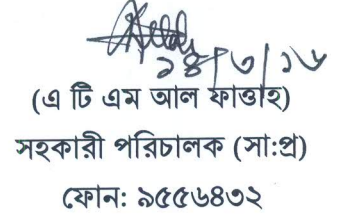 ২৪/৩/১৬
(এ টি এম আল ফাত্তাহ)
সহকারী পরিচালক (সা:প্র)
ফোন: ৯৫৫৬৪৩২